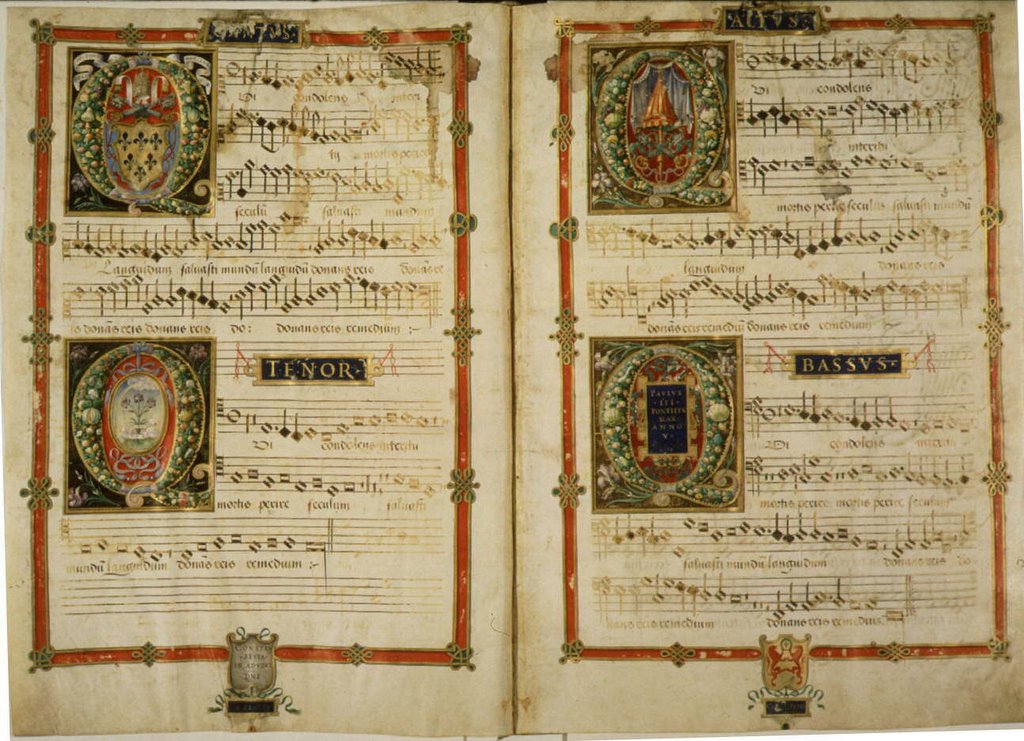 CANTUS
Qui condolens interi
tu mortis perire
seculū saluasti mundum
Languidum saluasti mundū languidū donans reis donās re
is donās reis donans reis do: donans reis remedium :~
TENOR
Qui condolens interitu
mortis perire seculum saluasti
mundū languidum donās reis remedium :~
ALTVS
Qui condolens
interitu
mortis perire seculū saluasti mundū
languidum donans reis
donans reis remediū donans reis remedium
BASSVS
PAVLVS
III
PONTIFEX
MAX
ANNO
V
Qui condolens interitu
mortis perire mortis perire seculum
saluasti mundū languidum donans reis do
nans reis remedium donans reis remediū